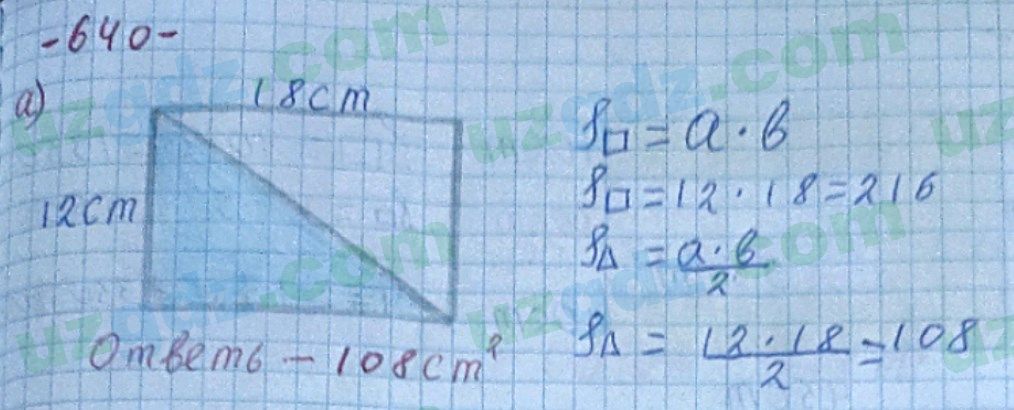 -640-
а)
18cm
12cm
S□ = a · b
S□ = 12 · 18 = 216
S∆ = a · b / 2
S∆ = 12 · 18 / 2 = 108
Ответь - 108cm²
uzgdz.com
uzgdz.com
uzgdz.com
uzgdz.com
uz
uz